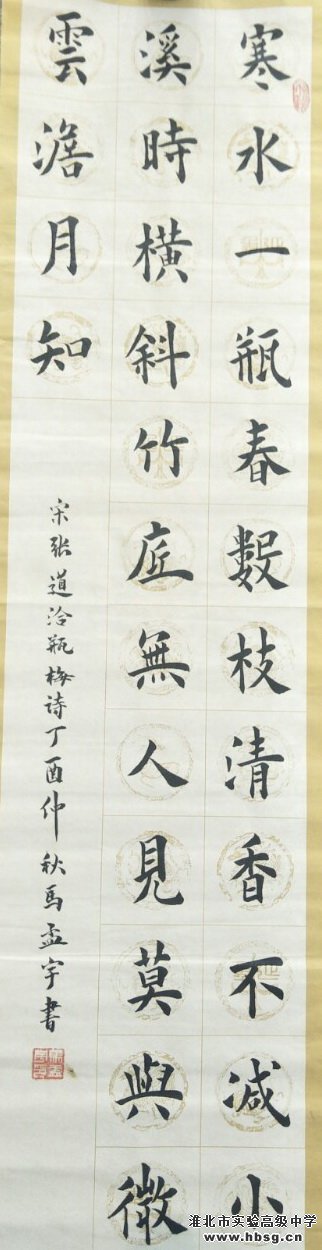 寒水一瓶春數枝清香不減小
溪時橫斜竹底無人見莫與微
雲澹月知
宋张道洽瓶梅诗丁酉仲秋馬孟宇書
淮北市实验高级中学
www.hbsg.cn